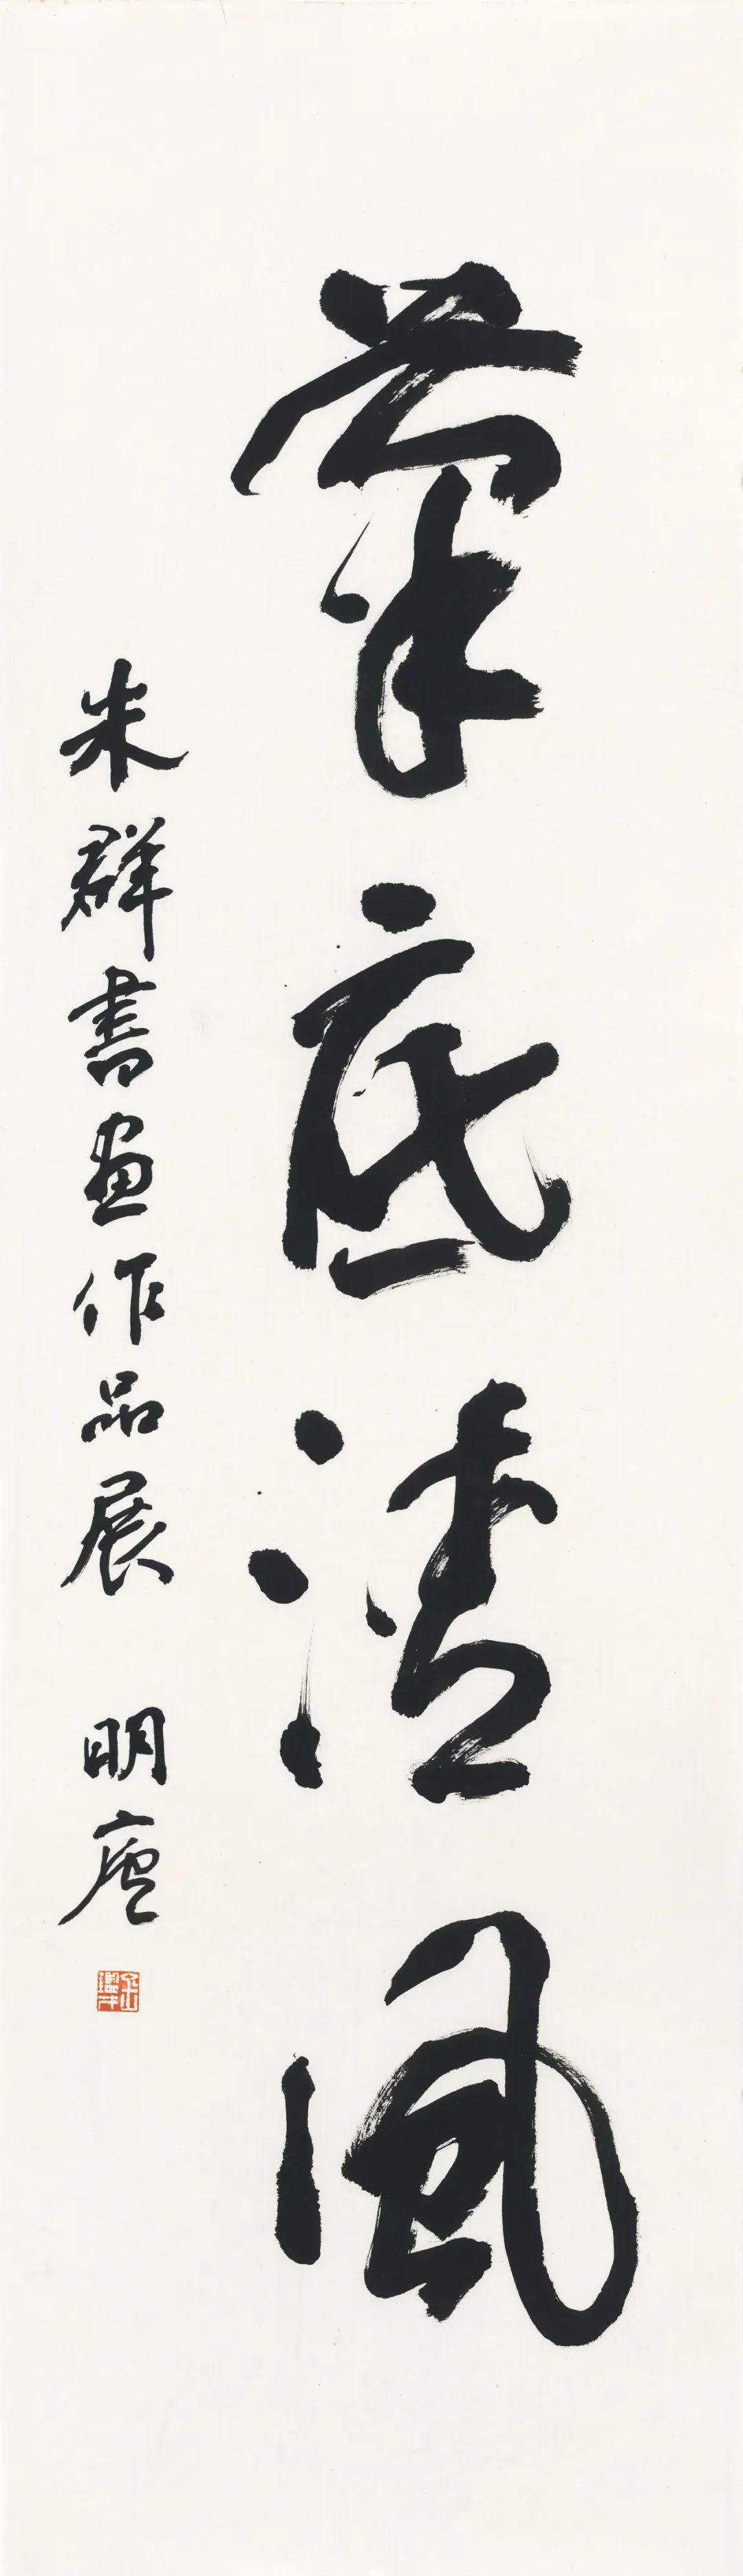 筆底清風
朱群書畫作品展 明庵